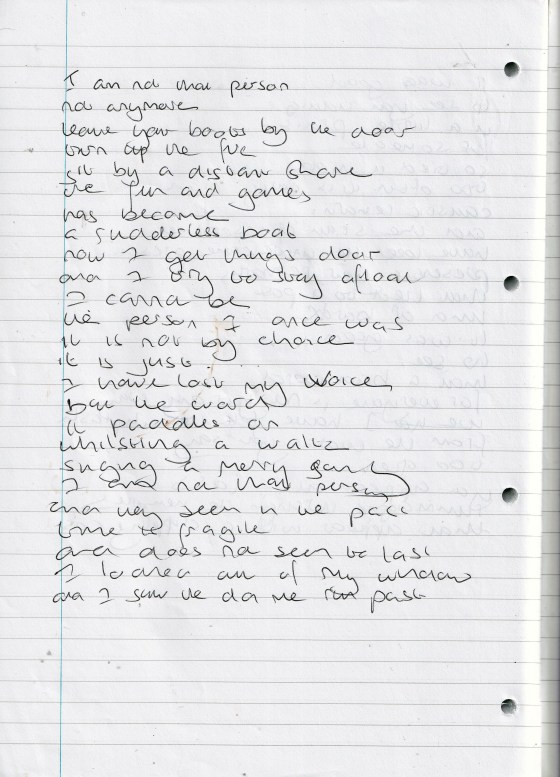 I am not that person
not anymore
leave your boots by the door
turn up the fire
sit by a distant shore
the fun and games
has become
a rudderless boat
now I get things
and I try to stay afloat
I cannot be
the person I once was
it is not by choice
it is just . . .
I have lost my voice
but the world
it paddles on
whilsting a waltz
singing a merry song
I am not that person
and they seem in the past
time is fragile
and does not seem to last
I looked out of my window
and I saw the me past